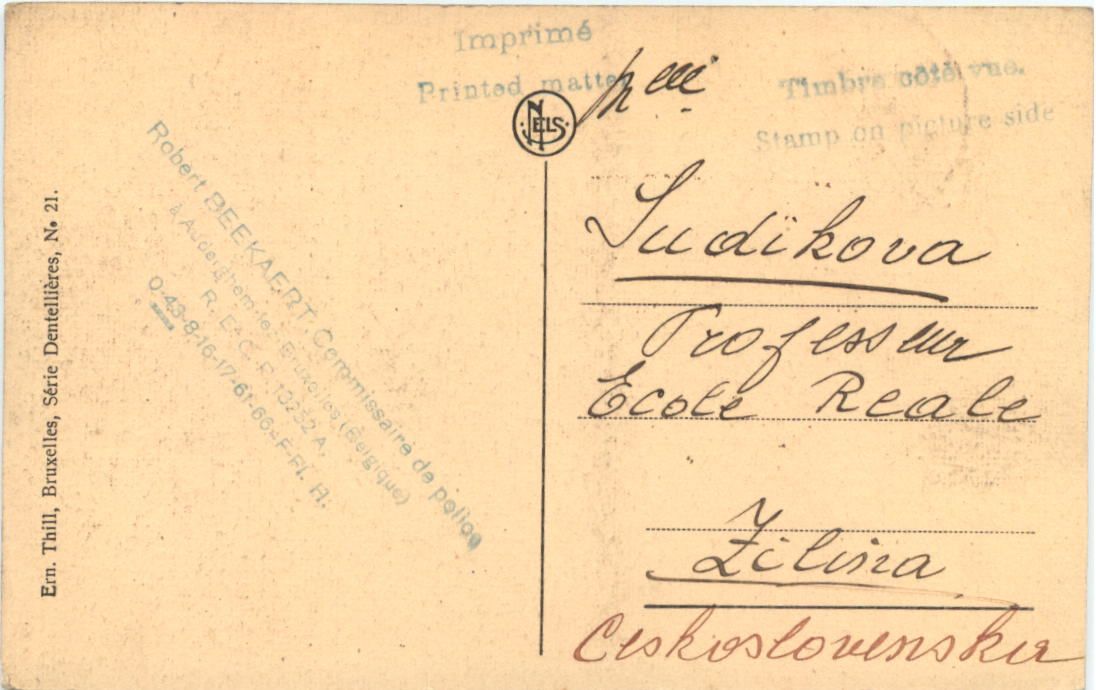 Imprimé
Printed matter
Timbre côté vue.
Stamp on picture side
NELS
Ern. Thill, Bruxelles, Série Dentellières, No 21.
Robert BEEKAERT, Commissaire de police
à Auderghem-lez-Bruxelles (Belgique)
R. E. C. P. 13232 A.
0-43-8-16-17-61-66-F-Pl. H.
Melle
Sudikova
Professeur
Ecole Reale
Zilina
Ceskoslovenska